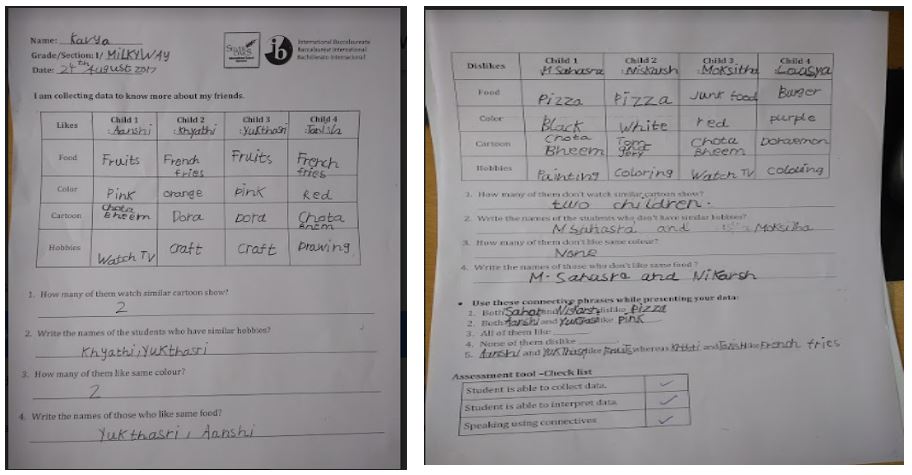 Name: Kavya
Grade/Section: I/ MILKYWAY
Date: 24th August 2017
ib
International Baccalaureate
Baccalauréat International
Bachillerato Internacional
I am collecting data to know more about my friends.
Likes Child 1 :Aanshi Child 2 :Khyathi Child 3 :Yukthasri Child 4 :Tanisha
Food Fruits French fries Fruits French fries
Color Pink orange pink Red
Cartoon Chota Bheem Dora Dora Chota Bhem
Hobbies Watch TV craft craft Drawing
1. How many of them watch similar cartoon show?
2
2. Write the names of the students who have similar hobbies?
Khyathi, Yukthasri
3. How many of them like same colour?
2
4. Write the names of those who like same food?
Yukthasri, Aanshi
Dislikes Child 1 M Sahasra Child 2 :Niskarsh Child 3 :Moksitha Child 4 :Laasya
Food Pizza Pizza Junk food Burger
Color Black White red purple
Cartoon Chota Bheem Tom and Jery Chota Bheem Doraemon
Hobbies Painting Coloring Watch TV colouing
1. How many of them don't watch similar cartoon show?
two children.
2. Write the names of the students who don't have similar hobbies?
M Sahasra and Moksitha
3. How many of them don't like same colour?
None
4. Write the names of those who don't like same food?
M. Sahasra and Nikarsh
• Use these connective phrases while presenting your data:
1. Both and dislike Pizza
2. Both Aanshi and like Pink
3. All of them like
4. None of them dislike
5. Aanshi and like Fruits whereas and like French fries
Assessment tool –Check list
Student is able to collect data. ✓
Student is able to interpret data ✓
Speaking using connectives ✓